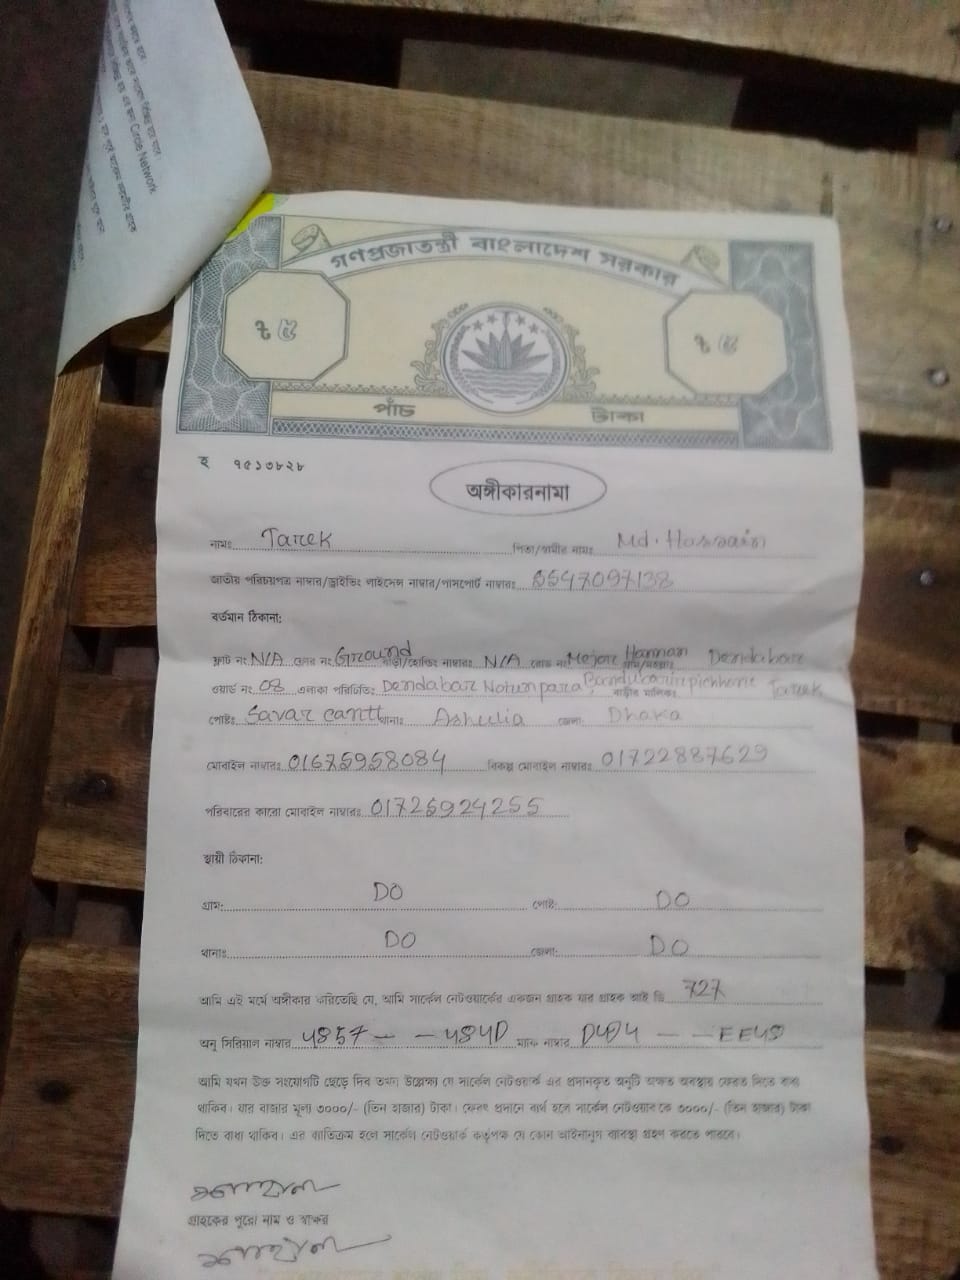 Circle Network
গণপ্রজাতন্ত্রী বাংলাদেশ সরকার
৳ ৫ ৳ ৫
পাঁচ টাকা
হ ৭৫১৩৮২৮
অঙ্গীকারনামা
নামঃ Tarek পিতা/স্বামীর নামঃ Md. Hossain
জাতীয় পরিচয়পত্র নাম্বার/ড্রাইভিং লাইসেন্স নাম্বার/পাসপোর্ট নাম্বারঃ 5547097138
বর্তমান ঠিকানা:
ফ্লাট নং N/A ফ্লোর নং Ground বাড়ী/হোল্ডিং নাম্বারঃ N/A রোড নং Mejor Hannan গ্রাম/মহল্লাঃ Dendabar
ওয়ার্ড নং 08 এলাকা পরিচিতিঃ Dendabar Notunpara, বাড়ীর মালিকঃ Tarek
পোষ্টঃ Savar cantt থানাঃ Ashulia জেলা: Dhaka
মোবাইল নাম্বারঃ 01675958084 বিকল্প মোবাইল নাম্বারঃ 01722887629
পরিবারের কারো মোবাইল নাম্বারঃ 01725924255
স্থায়ী ঠিকানা:
গ্রাম: DO পোষ্ট: DO
থানাঃ DO জেলা: DO
আমি এই মর্মে অঙ্গীকার করিতেছি যে, আমি সার্কেল নেটওয়ার্কের একজন গ্রাহক যার গ্রাহক আই ডি 727
অনু সিরিয়াল নাম্বার 4857 - - 484D ম্যাক নাম্বার D4D4 - - EE48
আমি যখন উক্ত সংযোগটি ছেড়ে দিব তখন উল্লেক্ষ্য যে সার্কেল নেটওয়ার্ক এর প্রদানকৃত অনুটি অক্ষত অবস্থায় ফেরত দিতে বাধ্য
থাকিব। যার বাজার মূল্য ৩০০০/- (তিন হাজার) টাকা। ফেরৎ প্রদানে ব্যর্থ হলে সার্কেল নেটওয়ার্ক কে ৩০০০/- (তিন হাজার) টাকা
দিতে বাধ্য থাকিব। এর ব্যতিক্রম হলে সার্কেল নেটওয়ার্ক কর্তৃপক্ষ যে কোন আইনানুগ ব্যবস্থা গ্রহণ করতে পারবে।
গ্রাহকের পুরো নাম ও স্বাক্ষর